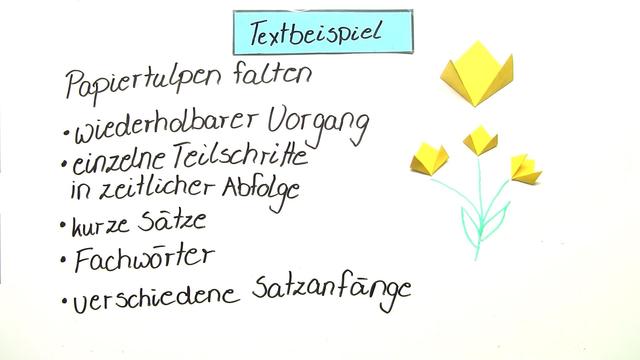 Textbeispiel
Papiertulpen falten
• wiederholbarer Vorgang
• einzelne Teilschritte
in zeitlicher Abfolge
• kurze Sätze
• Fachwörter
• verschiedene Satzanfänge